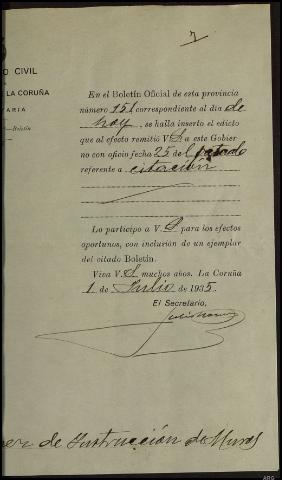 7
O CIVIL
LA CORUÑA
ARIA
Boletín
En el Boletín Oficial de esta provincia
número 151 correspondiente al día de
hoy, se halla inserto el edicto
que al efecto remitió V. S. a este Gobier
no con oficio fecha 25 del
referente a citación
Lo participo a V. S. para los efectos
oportunos, con inclusión de un ejemplar
del citado Boletín.
Viva V. S. muchos años. La Coruña
1 de Julio de 1935.
El Secretario,
de Instrucción de Muros